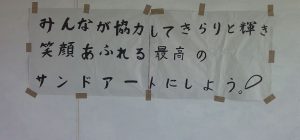 みんなが協力してきらりと輝き
笑顔あふれる最高の
サンドアートにしよう。